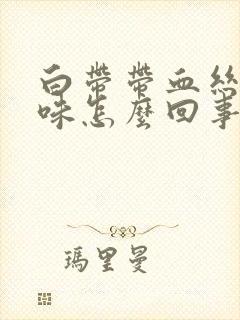 白帶帶血絲
味怎麼回事
瑪里曼